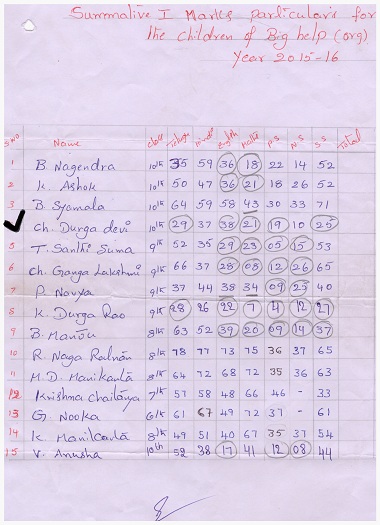 Summative I Marks particulars for
the children of Big help (org)
Year 2015-16
S.NO Name class Telugu Hindi English Maths P.S N.S S.S Total
1 B. Nagendra 10th 35 59 36 18 22 14 52
2 K. Ashok 10th 50 47 36 21 18 26 52
3 B. Syamala 10th 64 59 58 43 30 33 71
Ch. Durga devi 10th 29 37 38 21 19 10 25
5 T. Santhi Suma 9th 52 35 29 23 05 15 53
6 Ch. Ganga Lakshmi 9th 66 37 28 08 12 26 65
7 P. Navya 9th 37 44 38 34 09 25 40
8 K. Durga Rao 9th 28 26 22 7 4 12 27
9 B. Manju 8th 63 52 39 20 09 14 37
10 R. Naga Ratnam 8th 78 77 73 75 36 37 65
11 M.D. Manikanta 8th 64 72 68 72 35 36 63
12 Krishna chaitanya 7th 57 58 48 66 46 - 33
13 G. Nooka 6th 61 67 49 72 37 - 61
14 K. Manikanta 8th 49 51 40 67 35 37 54
15 V. Anusha 10th 52 38 17 41 12 08 44